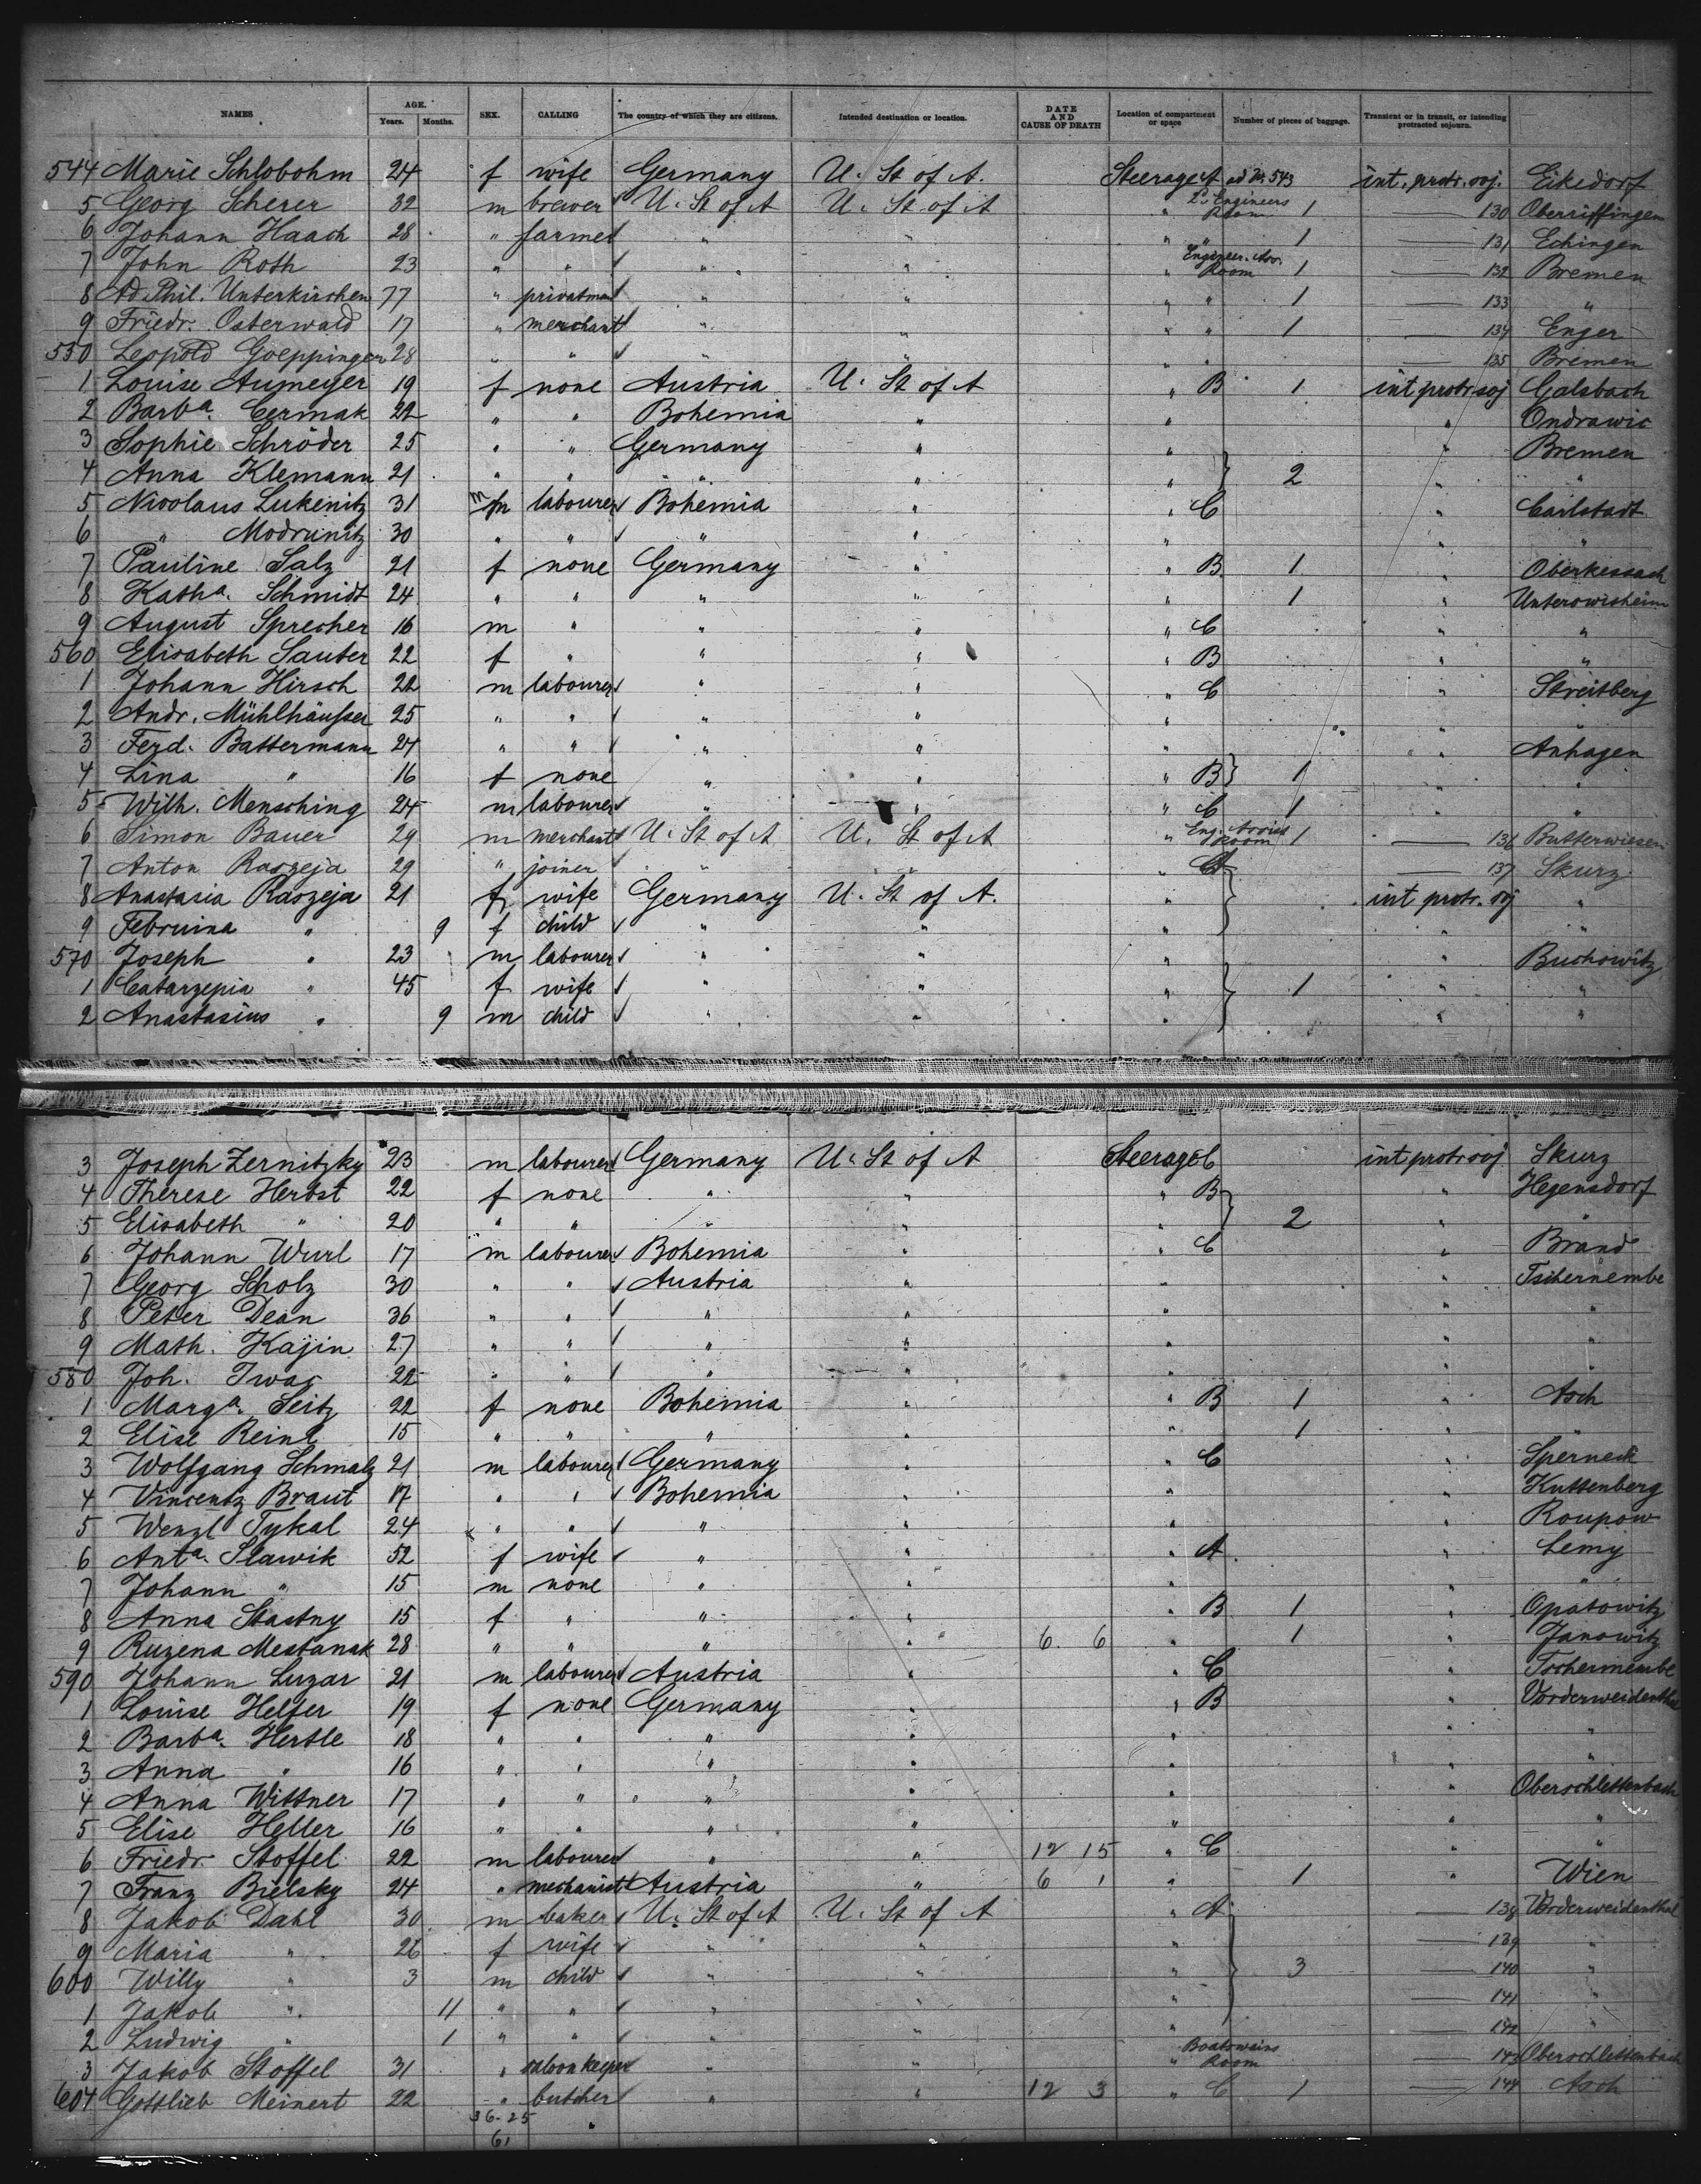 NAMES AGE. Years. Months. SEX. CALLING The country of which they are citizens. Intended destination or location. DATE AND CAUSE OF DEATH Location of compartment or space Number of pieces of baggage. Transient or in transit, or intending protracted sojourn.
544 Marie Schlobohm 24 f wife Germany U. St of A. Steerage A ad No. 543 int. protr. soj. Eikedorf
5 Georg Scherer 32 m brewer U. St of A U. St of A " Engineers Room 1 — 130 Oberriffingen
6 Johann Haach 28 " farmer " " " " 1 — 131 Echingen
7 John Roth 23 " " " " " Engineer. Room 1 — 132 Bremen
8 Ad. Phil. Unterkirchen 77 " privatman " " " " 1 — 133 "
9 Friedr. Osterwald 17 " merchant " " " " 1 — 134 Enger
550 Leopold Goeppinger 28 " " " " " " — 135 Bremen
1 Louise Aumeyer 19 f none Austria U. St of A " B 1 int protr. soj Galsbach
2 Barba. Cermak 22 " " Bohemia " " " Ondrawic
3 Sophie Schröder 25 " " Germany " " " Bremen
4 Anna Klemann 21 " " " " " 2 " "
5 Nicolaus Lukenitz 31 m labourer Bohemia " " C " Carlstadt
6 " Modrunitz 30 " " " " " " "
7 Pauline Salz 21 f none Germany " " B 1 " Oberkessach
8 Katha. Schmidt 24 " " " " " 1 " Unterowisheim
9 August Sprecher 16 m " " " " C " "
560 Elisabeth Sauter 22 f " " " " B " "
1 Johann Hirsch 22 m labourer " " " C " Streitberg
2 Andr. Mühlhäusser 25 " " " " " " "
3 Ferd. Battermann 24 " " " " " " Anhagen
4 Lina " 16 f none " " " B 1 " "
5 Wilh. Mensching 24 m labourer " " " C 1 " "
6 Simon Bauer 29 m merchant U. St of A U. St of A " Eng. Room 1 — 136 Butterwiesen
7 Anton Raszeja 29 " joiner " " " A — 137 Skurz
8 Anastasia Raszeja 21 f wife Germany U. St of A. " int protr. soj "
9 Februina " 9 f child " " " " "
570 Joseph " 23 m labourer " " " " Buchowitz
1 Catarzepia " 45 f wife " " " 1 " "
2 Anastasius " 9 m child " " " " "
3 Joseph Zernitzky 23 m labourer Germany U. St of A Steerage C int protr soj Skurz
4 Therese Herbst 22 f none " " " B " Hegensdorf
5 Elisabeth " 20 " " " " " 2 " "
6 Johann Wurl 17 m labourer Bohemia " " C " Brand
7 Georg Scholz 30 " " Austria " " " Tschernembe
8 Peter Dean 36 " " " " " " "
9 Math. Kajin 27 " " " " " " "
580 Joh. Iwac 22 " " " " " " "
1 Marga. Seitz 22 f none Bohemia " " B 1 " Asch
2 Elise Reinl 15 " " " " " 1 " "
3 Wolfgang Schmalz 21 m labourer Germany " " C " Sperneck
4 Vincentz Braut 17 " " Bohemia " " " Kuttenberg
5 Wenzl Tykal 24 " " " " " " Roupow
6 Anta. Slawik 52 f wife " " " A " Lemy
7 Johann " 15 m none " " " " "
8 Anna Stastny 15 f " " " " B 1 " Opatowitz
9 Ruzena Mestanak 28 " " " " 6 6 " 1 " Janowitz
590 Johann Luzar 21 m labourer Austria " " C " Tschermembe
1 Louise Helfer 19 f none Germany " " B " Vorderweidenthal
2 Barba. Hertle 18 " " " " " " "
3 Anna " 16 " " " " " " "
4 Anna Wittner 17 " " " " " " Oberschlettenbach
5 Elise Heller 16 " " " " " " "
6 Friedr. Stoffel 22 m labourer " " 12 15 " C " "
7 Franz Bielsky 24 " mechanist Austria " 6 1 " 1 " Wien
8 Jakob Dahl 30 m baker U. St of A U. St of A " A — 138 Vorderweidenthal
9 Maria " 26 f wife " " " — 139 "
600 Willy " 3 m child " " " 3 — 140 "
1 Jakob " 11 " " " " " — 141 "
2 Ludwig " 1 " " " " " — 142 "
3 Jakob Stoffel 31 " saloonkeeper " " " Boatswains Room — 143 Oberschlettenbach
604 Gottlieb Meinert 22 " butcher " " 12 3 " C 1 — 144 Asch
36-25
61